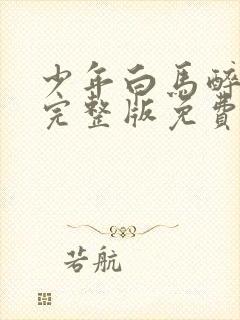 少年白馬醉
完整版免費
若航